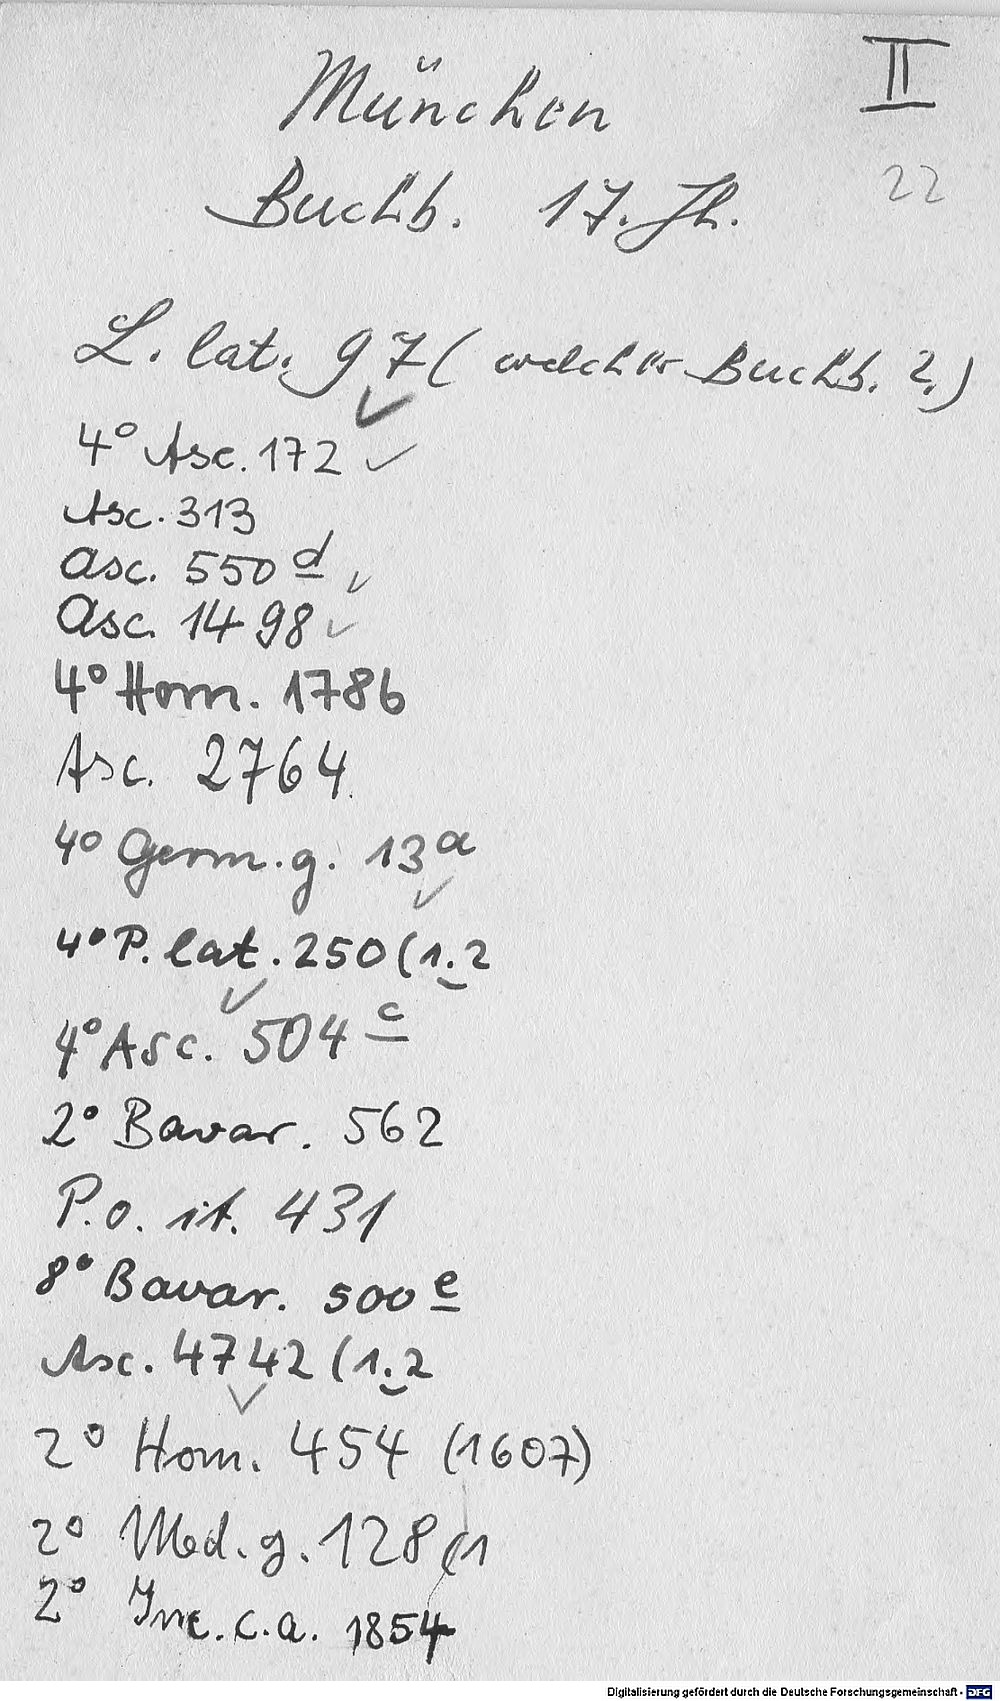 München
II
22
Buchb. 17. Jh.
L. lat. 97 ( welcher Buchb. ?.)
4° Asc. 172 ✓
Asc. 313
Asc. 550 d ✓
Asc. 1498 ✓
4° Hom. 1786
Asc. 2764
4° Germ. g. 13 a
4° P. lat. 250 (1.2
4° Asc. 504 c
2° Bavar. 562
P. o. it. 431
8° Bavar. 500 e
Asc. 4742 (1.2
2° Hom. 454 (1607)
2° Med. g. 128 (1
2° Inc. c. a. 1854
Digitalisierung gefördert durch die Deutsche Forschungsgemeinschaft - DFG